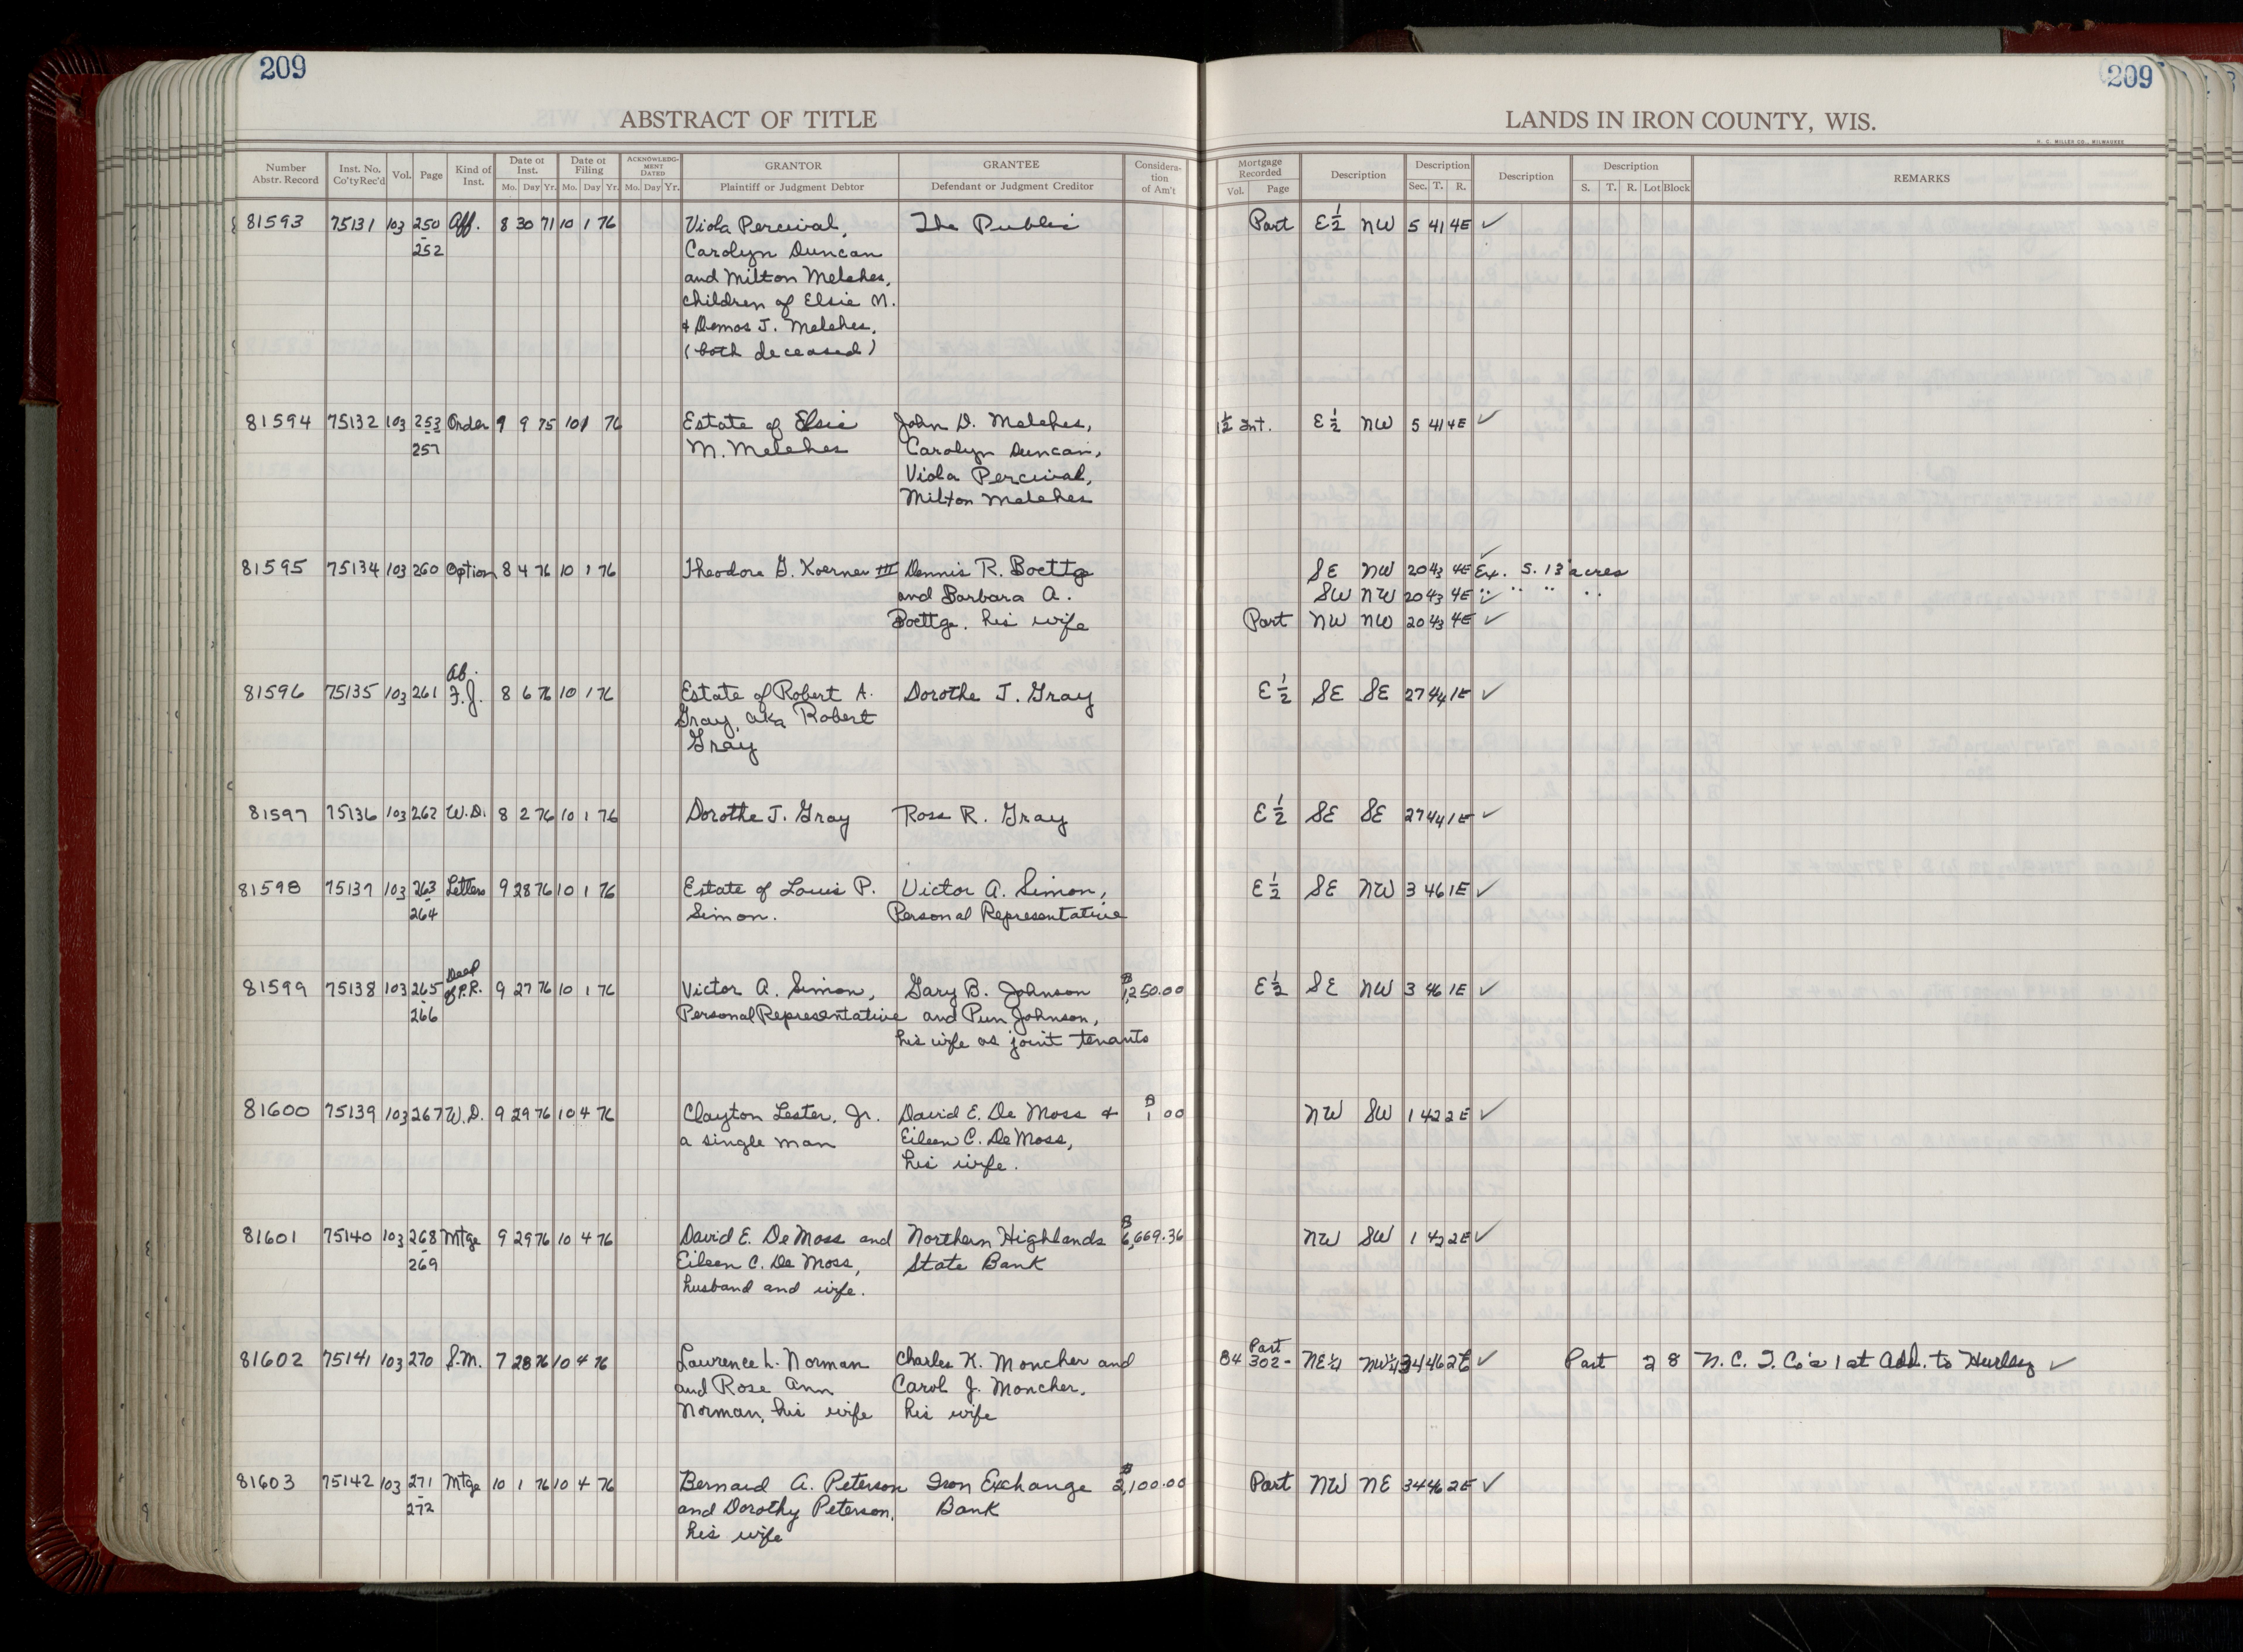 209
209
ABSTRACT OF TITLE
LANDS IN IRON COUNTY, WIS.
H. C. MILLER CO., MILWAUKEE
Number Abstr. Record | Inst. No. Co'ty Rec'd | Vol. | Page | Kind of Inst. | Date of Inst. Mo. Day Yr. | Date of Filing Mo. Day Yr. | ACKNOWLEDGMENT DATED Mo. Day Yr. | GRANTOR Plaintiff or Judgment Debtor | GRANTEE Defendant or Judgment Creditor | Consideration of Am't | Mortgage Recorded Vol. Page | Description | Description Sec. T. R. | Description | Description S. T. R. Lot Block | REMARKS
81593 75131 103 250 Aff. 8 30 71 10 1 76 Viola Percival, The Public Part E 1/2 NW 5 41 4E ✓
- 252 Carolyn Duncan
and Milton Melches,
children of Elsie M.
& Demos J. Melches,
(both deceased)
81594 75132 103 253 Order 9 9 75 10 1 76 Estate of Elsie John D. Melches, 1/2 Int. E 1/2 NW 5 41 4E ✓
- 257 M. Melches Carolyn Duncan,
Viola Percival,
Milton Melches
81595 75134 103 260 Option 8 4 76 10 1 76 Theodore G. Koerner III Dennis R. Boettge SE NW 20 43 4E ✓ Ex. S. 13 acres
and Barbara A. SW NW 20 43 4E ✓ " " " "
Boettge, his wife Part NW NW 20 43 4E ✓
Ab.
81596 75135 103 261 F.J. 8 6 76 10 1 76 Estate of Robert A. Dorothe J. Gray E 1/2 SE SE 27 44 1E ✓
Gray, aka Robert
Gray
81597 75136 103 262 W.D. 8 2 76 10 1 76 Dorothe J. Gray Ross R. Gray E 1/2 SE SE 27 44 1E ✓
81598 75137 103 263 Letters 9 28 76 10 1 76 Estate of Louis P. Victor A. Simon, E 1/2 SE NW 3 46 1E ✓
- 264 Simon. Personal Representative
Deed
81599 75138 103 265 of P.R. 9 27 76 10 1 76 Victor A. Simon, Gary B. Johnson $1,250.00 E 1/2 SE NW 3 46 1E ✓
- 266 Personal Representative and Pun Johnson,
his wife as joint tenants
81600 75139 103 267 W.D. 9 29 76 10 4 76 Clayton Lester, Jr. David E. De Moss & $1 00 NW SW 1 42 2E ✓
a single man Eileen C. De Moss,
his wife.
81601 75140 103 268 Mtge 9 29 76 10 4 76 David E. De Moss and Northern Highlands $6,669.36 NW SW 1 42 2E ✓
- 269 Eileen C. De Moss, State Bank
husband and wife.
81602 75141 103 270 S.M. 7 28 76 10 4 76 Lawrence L. Norman Charles K. Moncher and 84 Part 302- NE 1/4 NW 1/4 34 46 2E ✓ Part 2 8 N. C. I. Co's 1st Add. to Hurley ✓
and Rose Ann Carol J. Moncher,
Norman, his wife his wife
81603 75142 103 271 Mtge 10 1 76 10 4 76 Bernard A. Peterson Iron Exchange $2,100.00 Part NW NE 34 46 2E ✓
- 272 and Dorothy Peterson, Bank
his wife